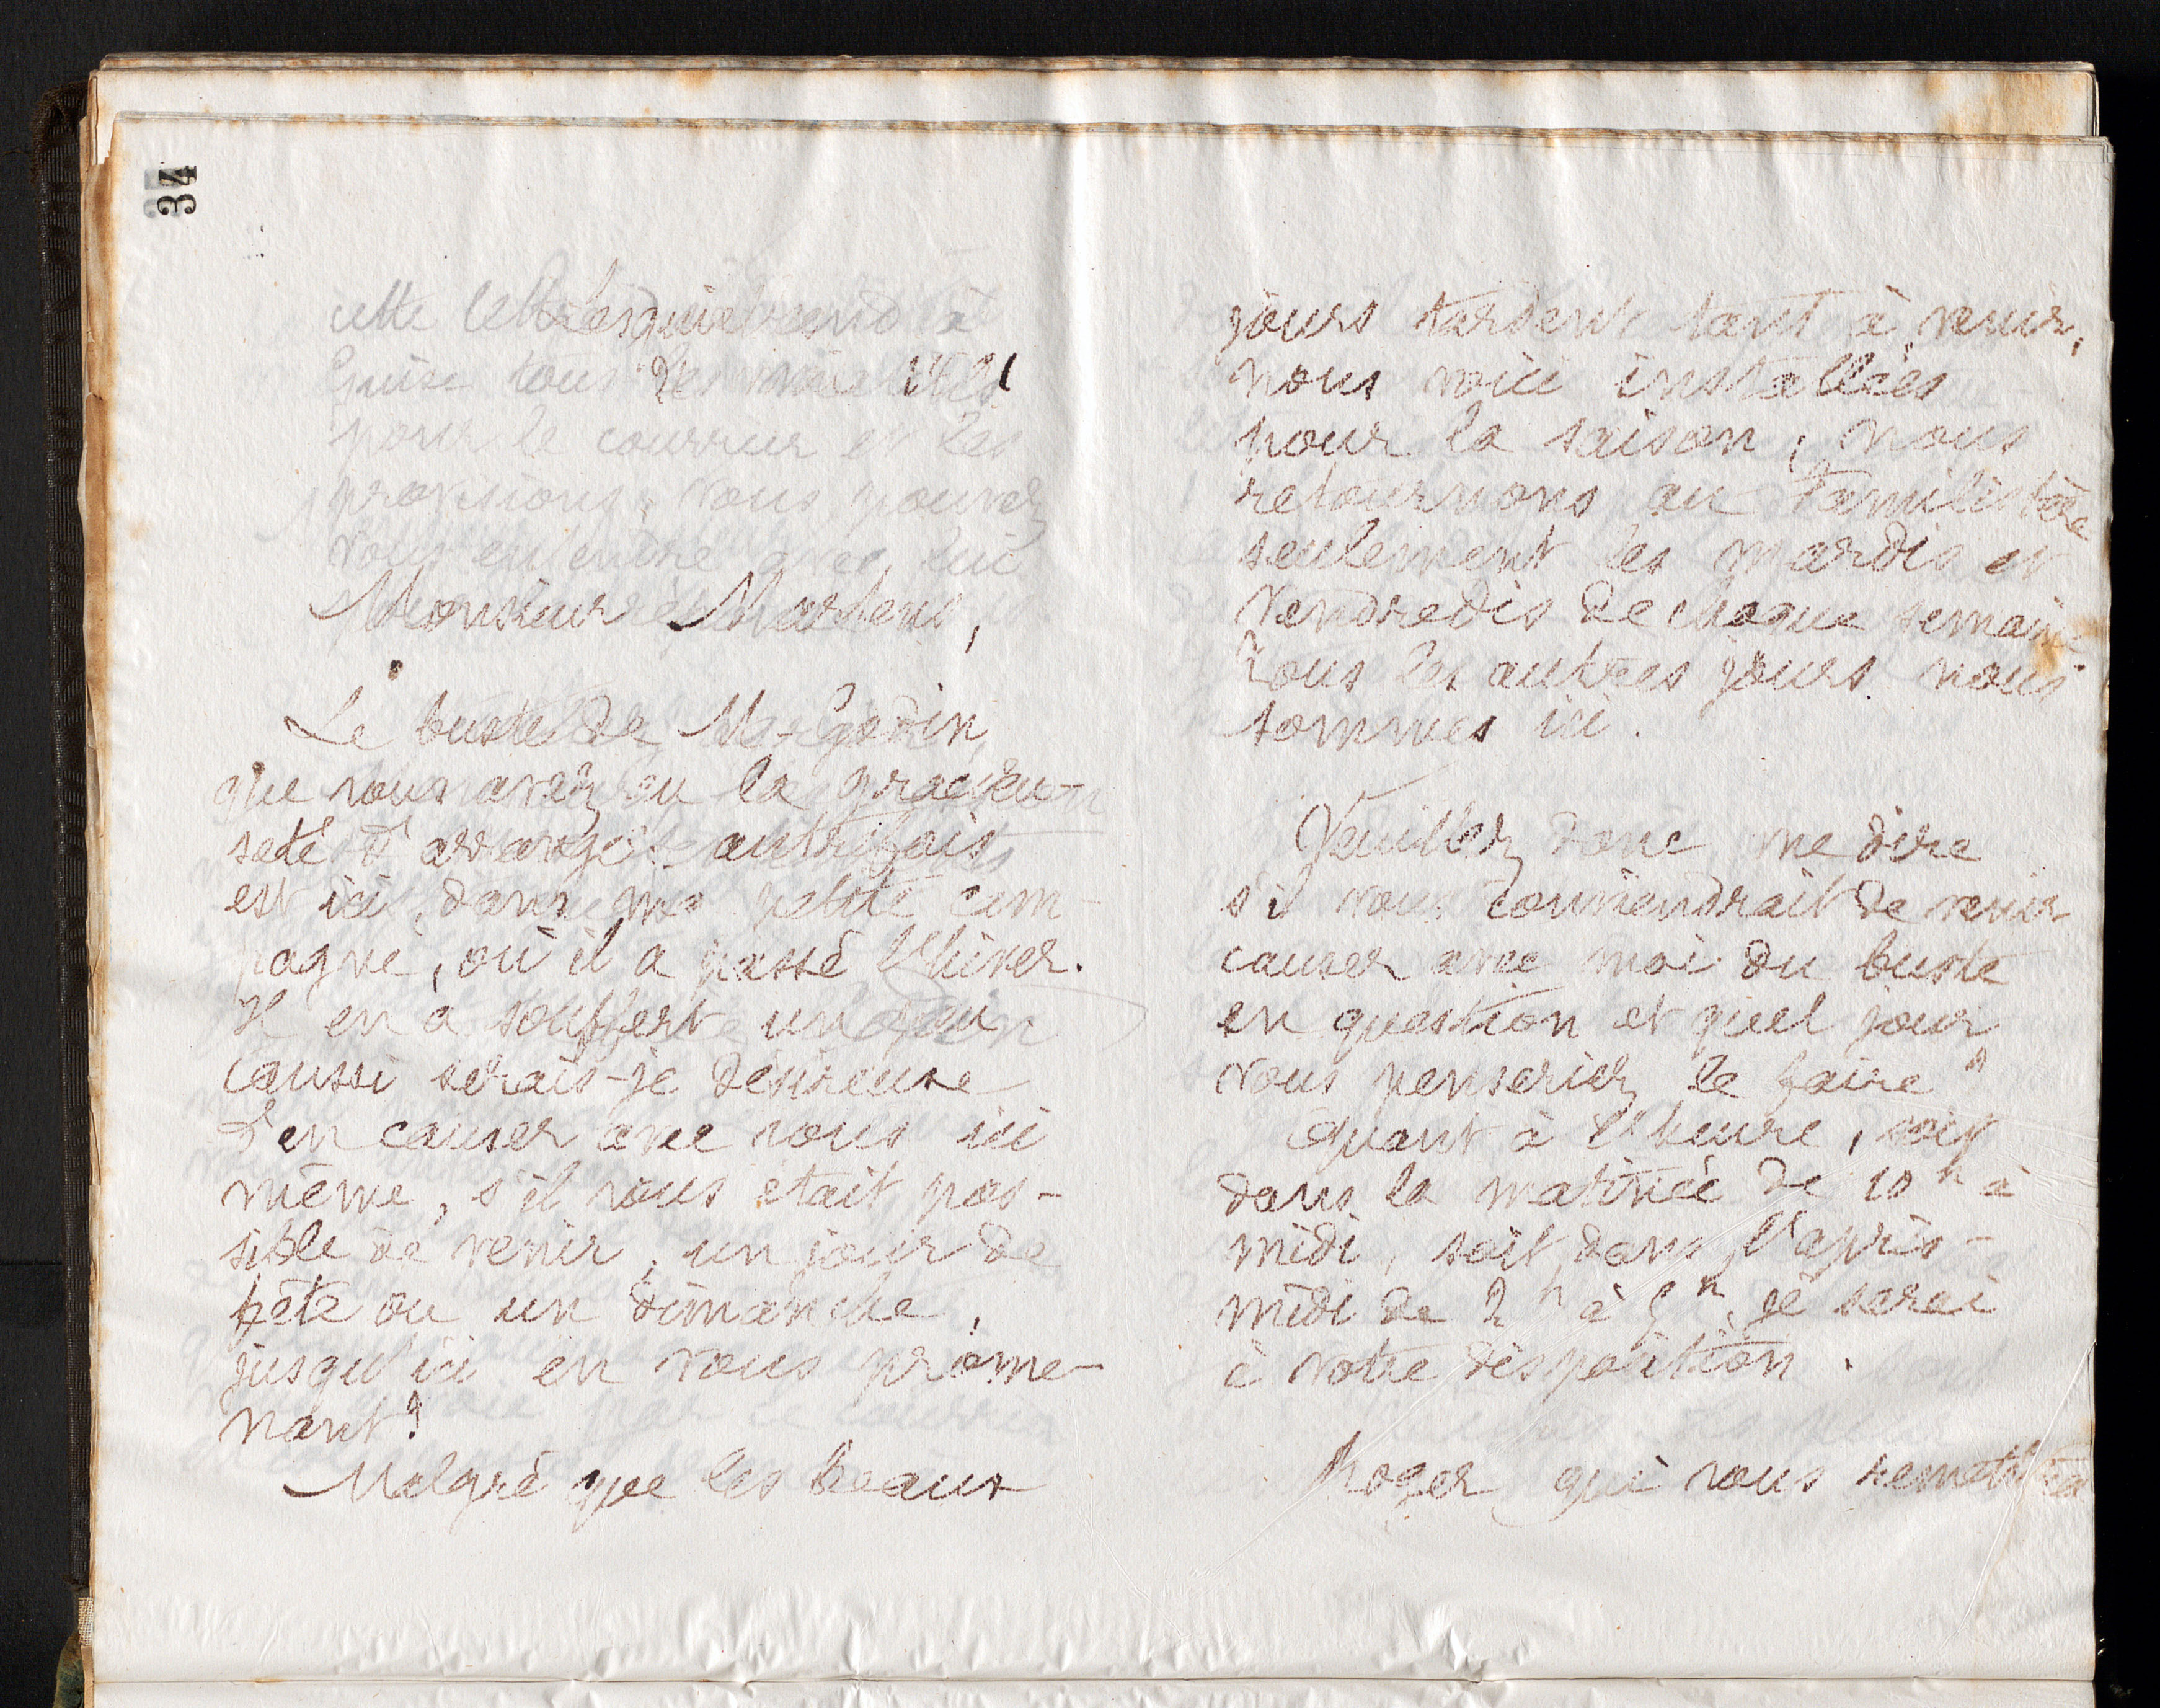 34
cette lettre
Lesquielles
Guise tous les
pour le courrier et les
provisions, vous pouvez
vous entendre avec lui
Monsieur Martens,
Le buste de M. Godin,
que vous avez eu la gracieu-
seté d'arranger autrefois
est ici, dans ma petite cam-
pagne, où il a passé l'hiver.
Il en a souffert un peu
aussi serais-je désireuse
d'en causer avec vous ici
même, s'il vous était pos-
sible de venir, un jour de
fête ou un dimanche,
jusqu'ici en vous prome-
nant!
Malgré que les beaux
jours tardent tant à venir,
nous voici installées
pour la saison; nous
retournons au Familistère
seulement les mardis et
vendredis de chaque semaine.
Tous les autres jours nous
sommes ici.
Veuillez donc me dire
s'il vous conviendrait de venir
causer avec moi du buste
en question et quel jour
vous penseriez le faire?
Quant à l'heure, soit
dans la matinée de 10h à
midi, soit dans l'après-
midi de 2h à 5h, je serai
à votre disposition.
Roger qui vous remettra